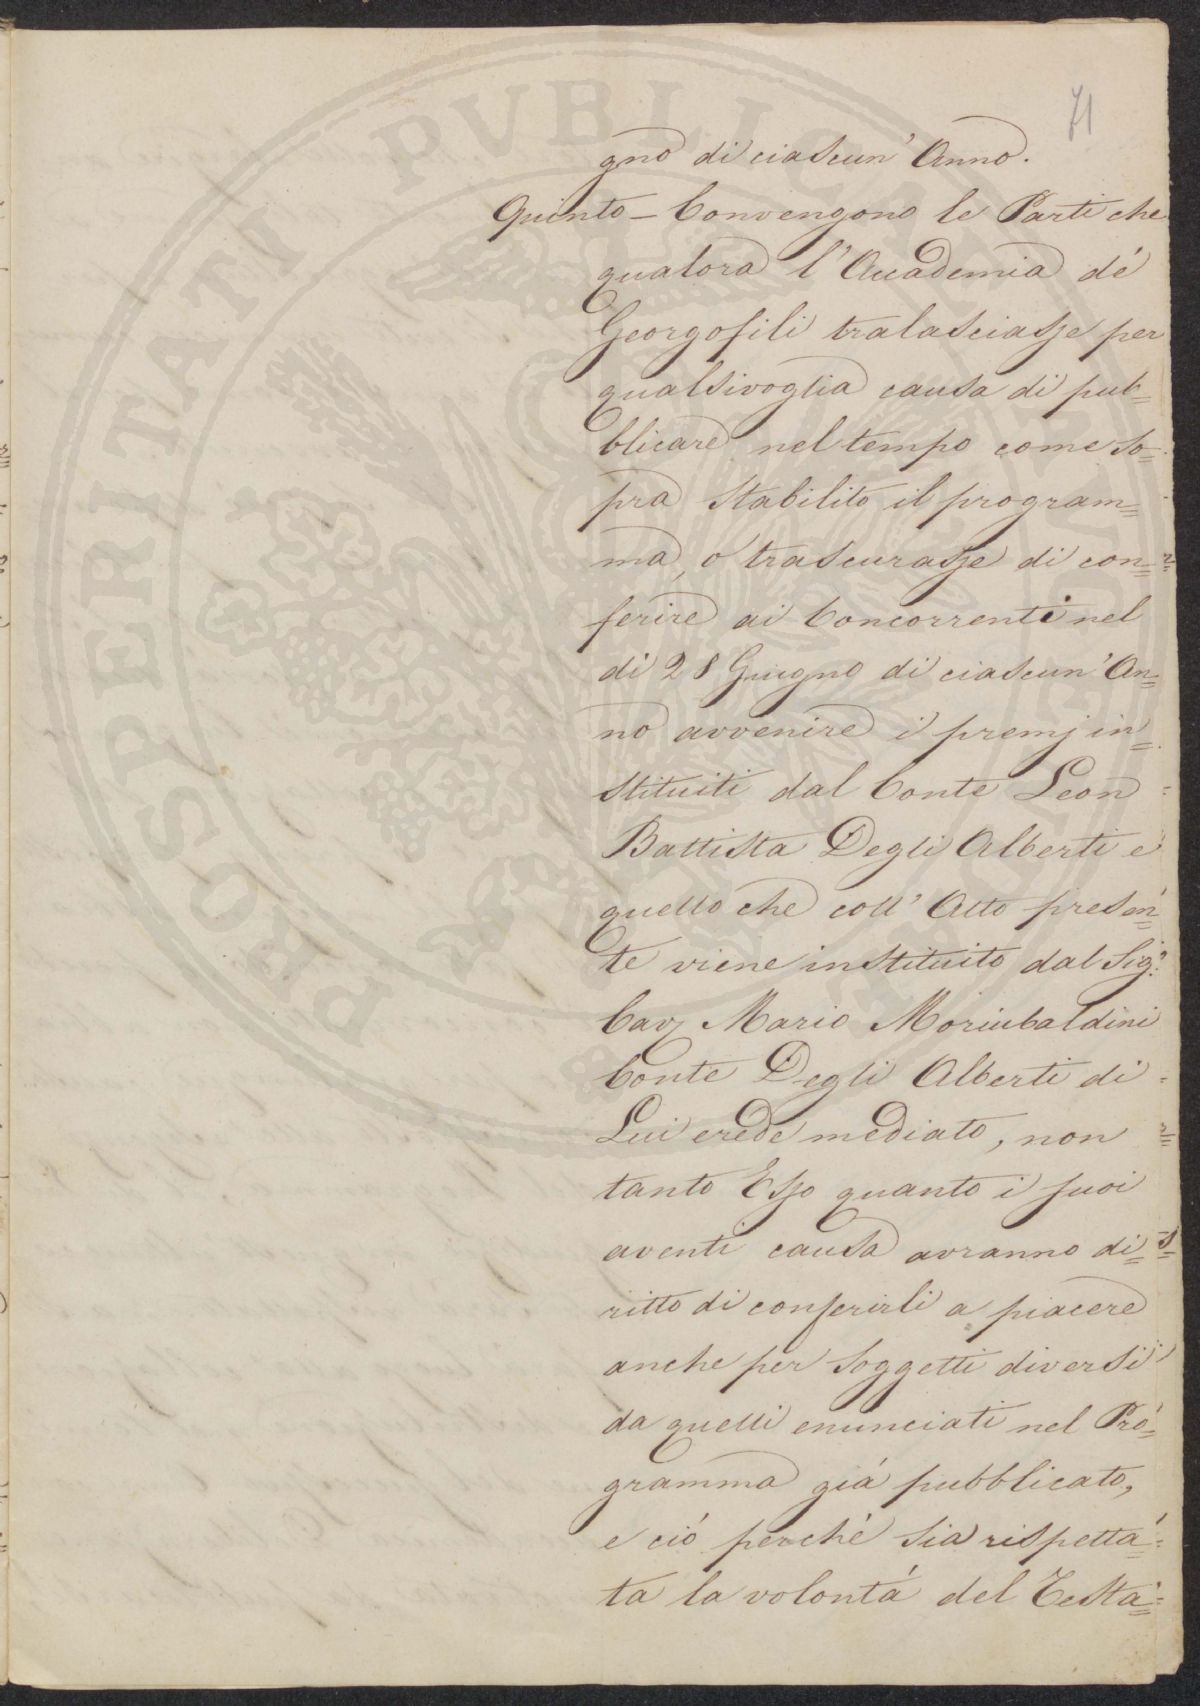 71
gno di ciascun' Anno.
Quinto – Convengono le Parti che
qualora l'Accademia dé
Georgofili tralasciasse per
qualsivoglia causa di pub=
blicare nel tempo come so=
pra stabilito il program=
ma, o trascurasse di con=
ferire ai Concorrenti nel
dì 28 Giugno di ciascun' An=
no avvenire i premj in=
stituiti dal Conte Leon
Battista Degli Alberti e
quello che coll' Atto presen=
te viene instituito dal Sig.r
Cav. Mario Moriubaldini
Conte Degli Alberti di
Lui erede mediato, non
tanto Esso quanto i suoi
aventi causa avranno di=
ritto di conferirli a piacere
anche per soggetti diversi
da quelli enunciati nel Pro=
gramma già pubblicato,
e ciò perché sia rispetta=
ta la volontà del Testa=
PROSPERITATI PVBLICAE